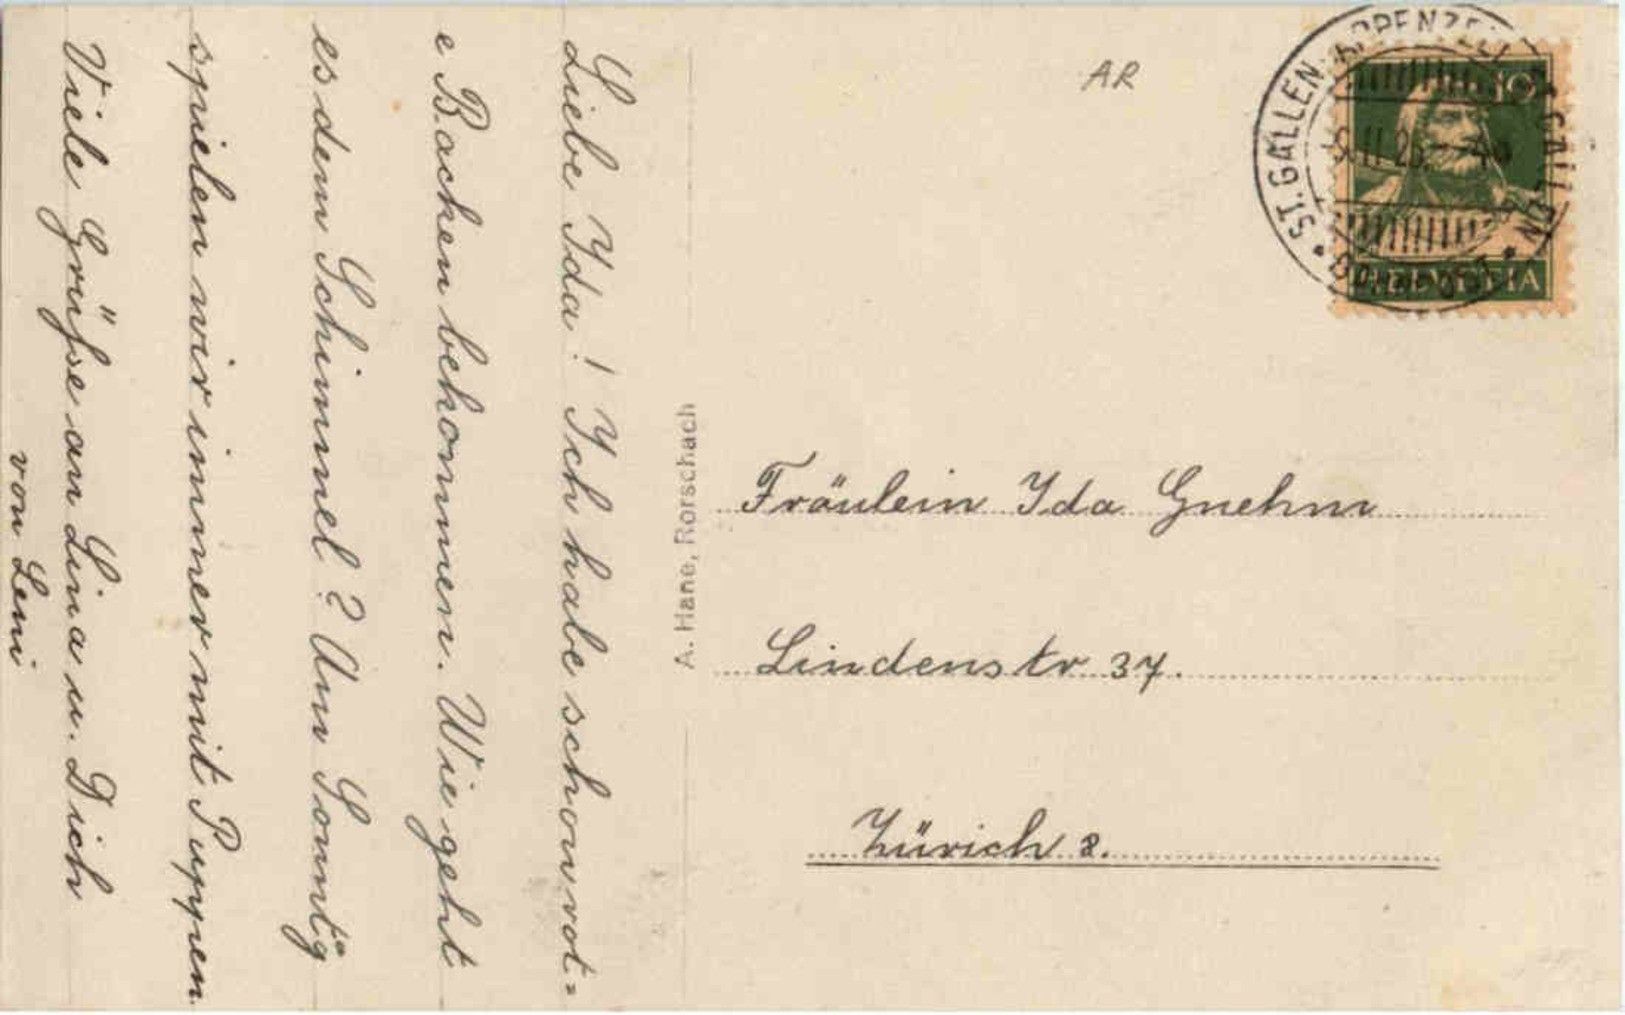 Liebe Ida! Ich habe schon rot=
e Backen bekommen. Wie geht
es dem Schimmel? Am Sonntag
spielen wir immer mit Puppen.
Viele Grüße an Lina u. Dich
von Leni
A. Hane, Rorschach
AR
ST. GALLEN
10
HELVETIA
Fräulein Ida Gnehm
Lindenstr 37.
Zürich 8.